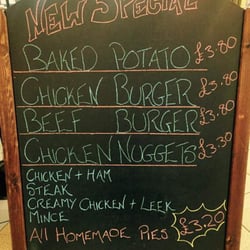 NEW SPECIAL
BAKED POTATO £3.80
CHICKEN BURGER £3.80
BEEF BURGER £3.80
CHICKEN NUGGETS £3.30
CHICKEN + HAM
STEAK
CREAMY CHICKEN + LEEK
MINCE
ALL HOMEMADE PIES £3.20